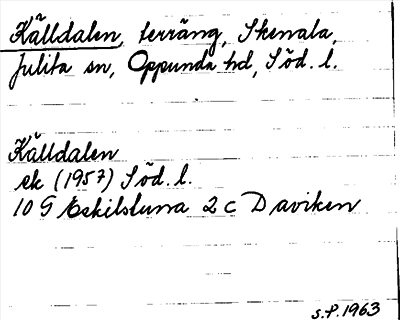 Källdalen, terräng, Skenala,
Julita sn, Oppunda hd, Söd. l.
Källdalen
ek (1957) Söd. l.
10 G Eskilstuna 2 c Daviken
S.P. 1963